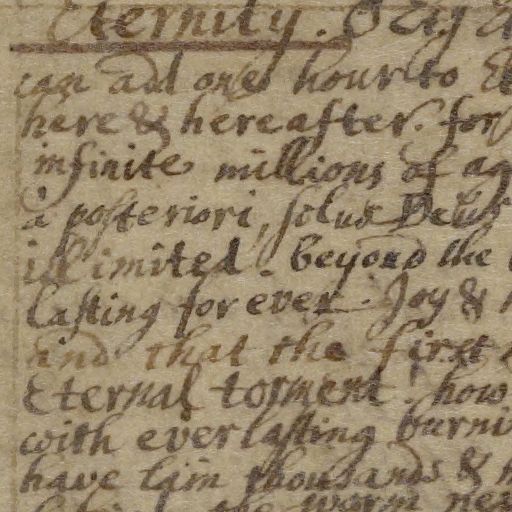 Eternity.
can add one hour to
here & hereafter. for
infinite millions of ag
à posteriori, solus Deus
illimited. beyond the
lasting for ever. Joy &
and that the first
Eternal torment. how
with everlasting burni
have lain thousands &
the worm nev